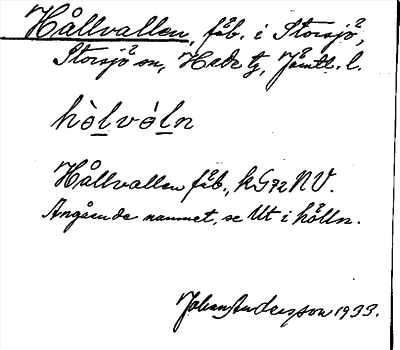 Hållvallen, fäb. i Storsjö,
Storsjö sn, Hede tg, Jämtl. l.
hòlvóln
Hållvallen fäb., kG72NV.
Angående namnet, se Ut i hålln.
Johan Andersson 1933.